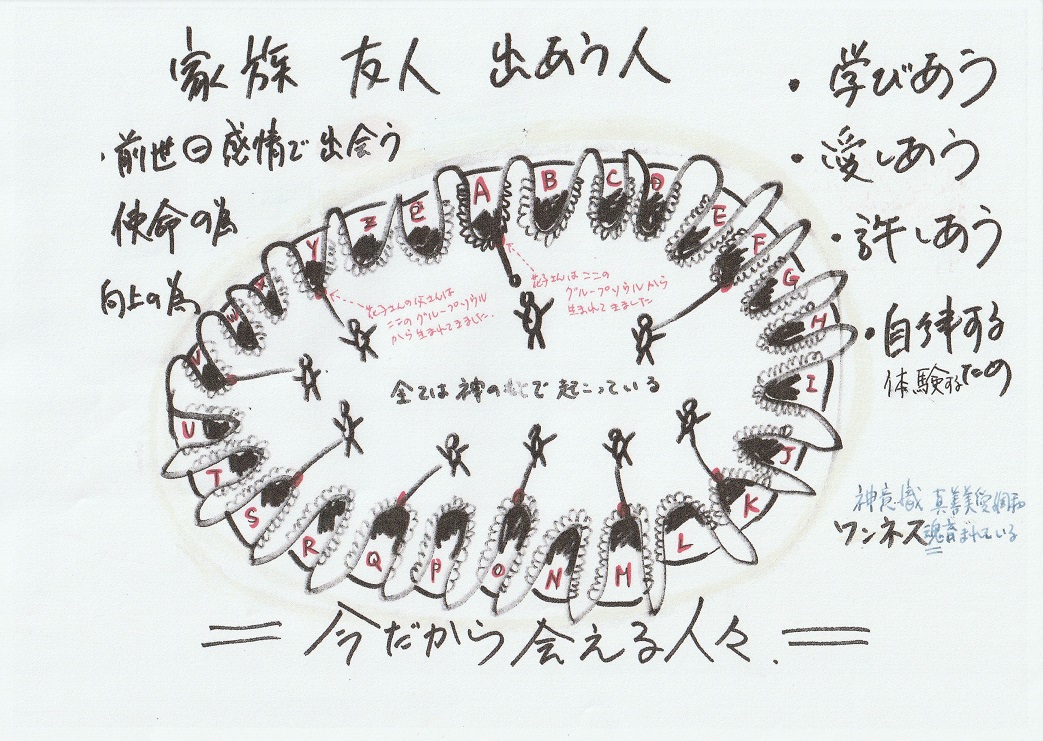 家族 友人 出あう人
・前世㊀感情で出会う
使命の為
向上の為
・学びあう
・愛しあう
・許しあう
・自律する
体験するため
A
B
C
D
E
F
G
H
I
J
K
L
M
N
O
P
Q
R
S
T
U
V
W
Y
Z
花子さんの父さんは
ここのグループソウル
から生まれてきました.
花子さんはここの
グループソウルから
生まれてきました
全ては神の で起こっている
神意識 真善美愛調和
ワンネス 魂育まれている
今だから会える人々.